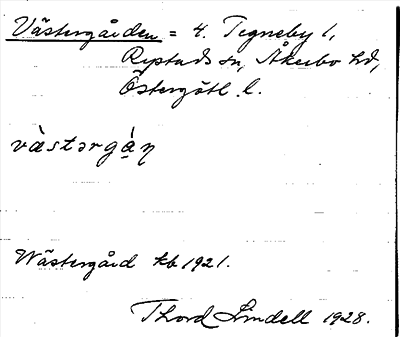 Västergården = 4. Tegneby 1,
Rystads sn, Åkerbo hd,
Östergötl. l.
västərgá̤ṇ
Wästergård kb 1921.
Thord Lindell 1928.